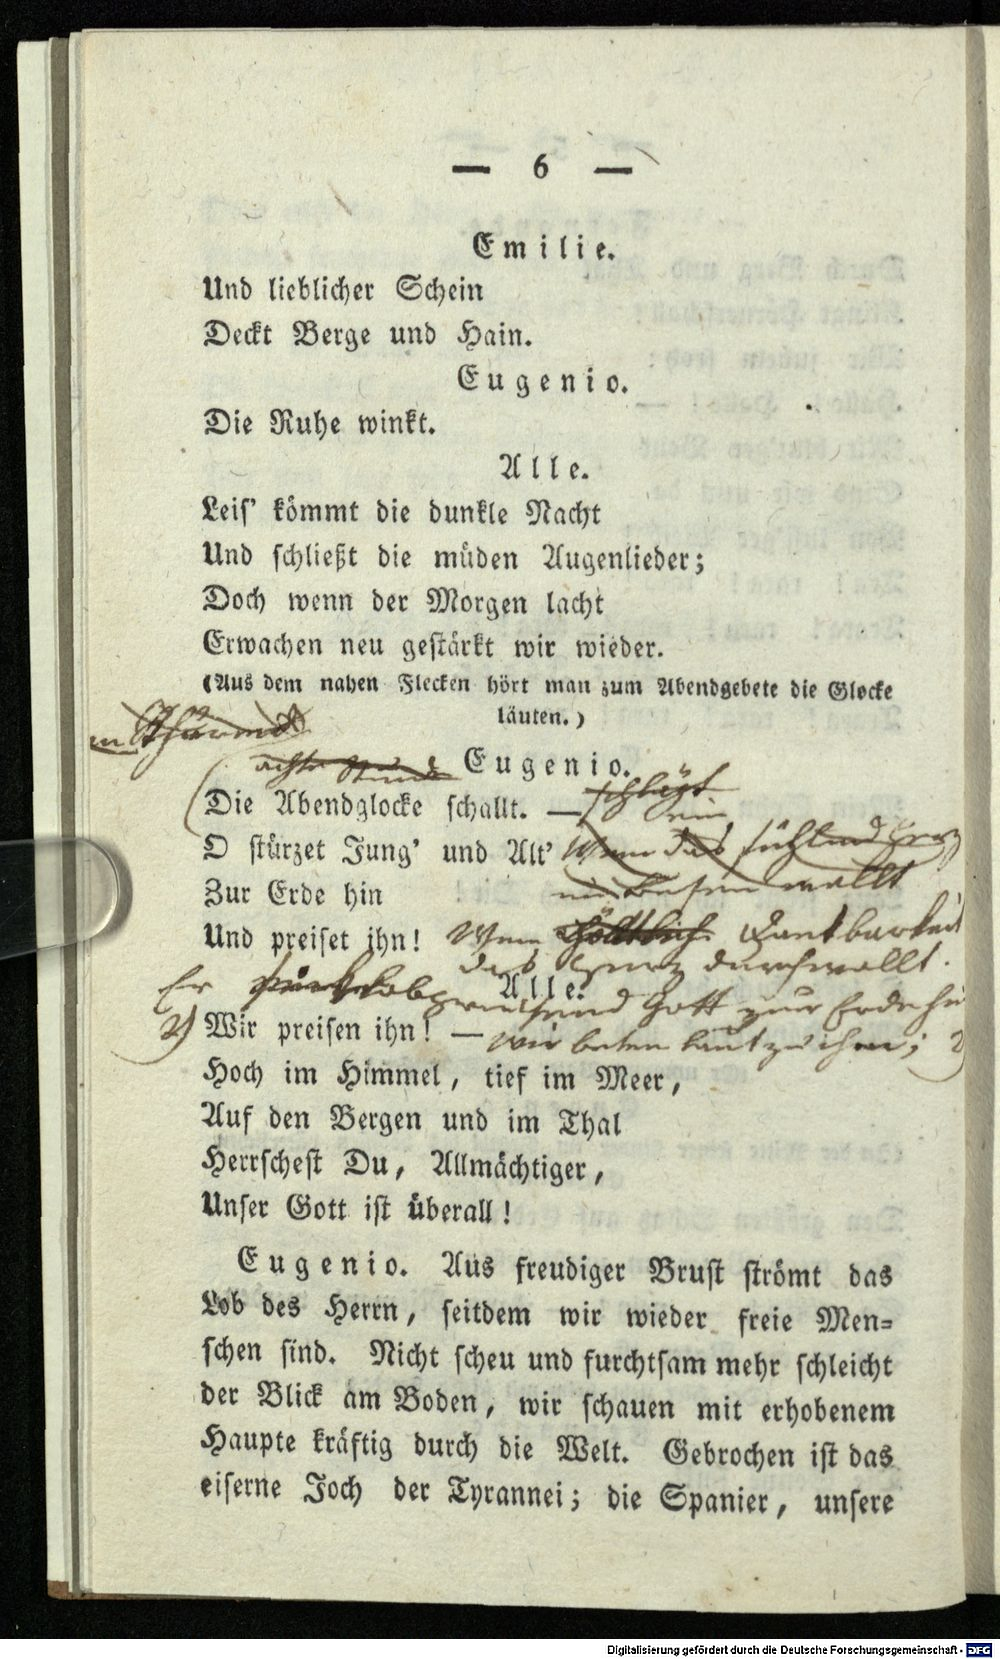 — 6 —
Emilie.
Und lieblicher Schein
Deckt Berge und Hain.
Eugenio.
Die Ruhe winkt.
Alle.
Leis' kömmt die dunkle Nacht
Und schließt die müden Augenlieder;
Doch wenn der Morgen lacht
Erwachen neu gestärkt wir wieder.
(Aus dem nahen Flecken hört man zum Abendgebete die Glocke
läuten.)
achte Stunde
Eugenio.
schlägt
Die Abendglocke schallt. —
O stürzet Jung' und Alt' Wenn das fühlend Herz
Zur Erde hin wallt
Und preiset ihn! Wenn Göttlich Dankbarkeit
das Herz durchwallt.
Alle.
Er lobpreisend Gott zur Erde hin
Wir preisen ihn! — wir beten laut zu ihm;
Hoch im Himmel, tief im Meer,
Auf den Bergen und im Thal
Herrschest Du, Allmächtiger,
Unser Gott ist überall!
Eugenio. Aus freudiger Brust strömt das
Lob des Herrn, seitdem wir wieder freie Men=
schen sind. Nicht scheu und furchtsam mehr schleicht
der Blick am Boden, wir schauen mit erhobenem
Haupte kräftig durch die Welt. Gebrochen ist das
eiserne Joch der Tyrannei; die Spanier, unsere
Digitalisierung gefördert durch die Deutsche Forschungsgemeinschaft - DFG